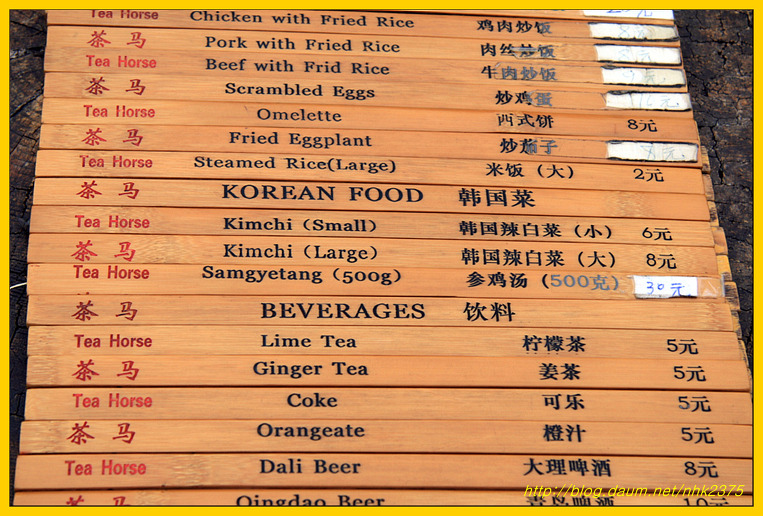 Tea Horse Chicken with Fried Rice 鸡肉炒饭
茶 马 Pork with Fried Rice 肉丝炒饭
Tea Horse Beef with Frid Rice 牛肉炒饭
茶 马 Scrambled Eggs 炒鸡蛋
Tea Horse Omelette 西式饼 8元
茶 马 Fried Eggplant 炒茄子
Tea Horse Steamed Rice(Large) 米饭（大） 2元
茶 马 KOREAN FOOD 韩国菜
Tea Horse Kimchi (Small) 韩国辣白菜（小） 6元
茶 马 Kimchi (Large) 韩国辣白菜（大） 8元
Tea Horse Samgyetang (500g) 参鸡汤（500克） 30元
茶 马 BEVERAGES 饮料
Tea Horse Lime Tea 柠檬茶 5元
茶 马 Ginger Tea 姜茶 5元
Tea Horse Coke 可乐 5元
茶 马 Orangeate 橙汁 5元
Tea Horse Dali Beer 大理啤酒 8元
茶 马 Qingdao Beer 青岛啤酒 10元
http://blog.daum.net/nhk2375